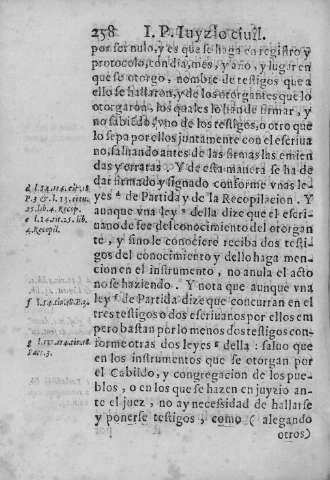 258 I. P. Iuyzio ciuil.
por ser nulo, y es que se haga en registro y
protocolo, con dia, mes, y año, y lugar en
que se otorgo, nombre de testigos que a
ello se hallarõn, y de los otorgantes que lo
otorgarõn, los quales lo hande firmar, y
no sabiẽdo, vno de los testigos, o otro que
lo sepa por ellos juntamente con el escriua
no, saluando antes de las firmas las emien
das y erratas. Y de esta manera se ha de
dar firmado y signado conforme vnas le-
yes d de Partida y de la Recopilacion. Y
aunque vna ley e della dize que el escri-
uano de fee del conocimiento del otorgan
te, y sino le conociere reciba dos testi-
gos del conocimiento y dello haga men-
cion en el instrumento, no anula el acto
no se haziendo. Y nota que aunque vna
ley f de Partida dize que concurran en el
tres testigos o dos escriuanos por ellos em
pero bastan por lo menos dos testigos con-
forme otras dos leyes g della: saluo que
en los instrumentos que se otorgan por
el Cabildo, y congregacion de los pue-
blos, o en los que se hazen en juyzio an-
te el juez, no ay necessidad de hallarse
y ponerse testigos, como (alegando
otros)
25. lib. 4. Recop.
4. Recopil.